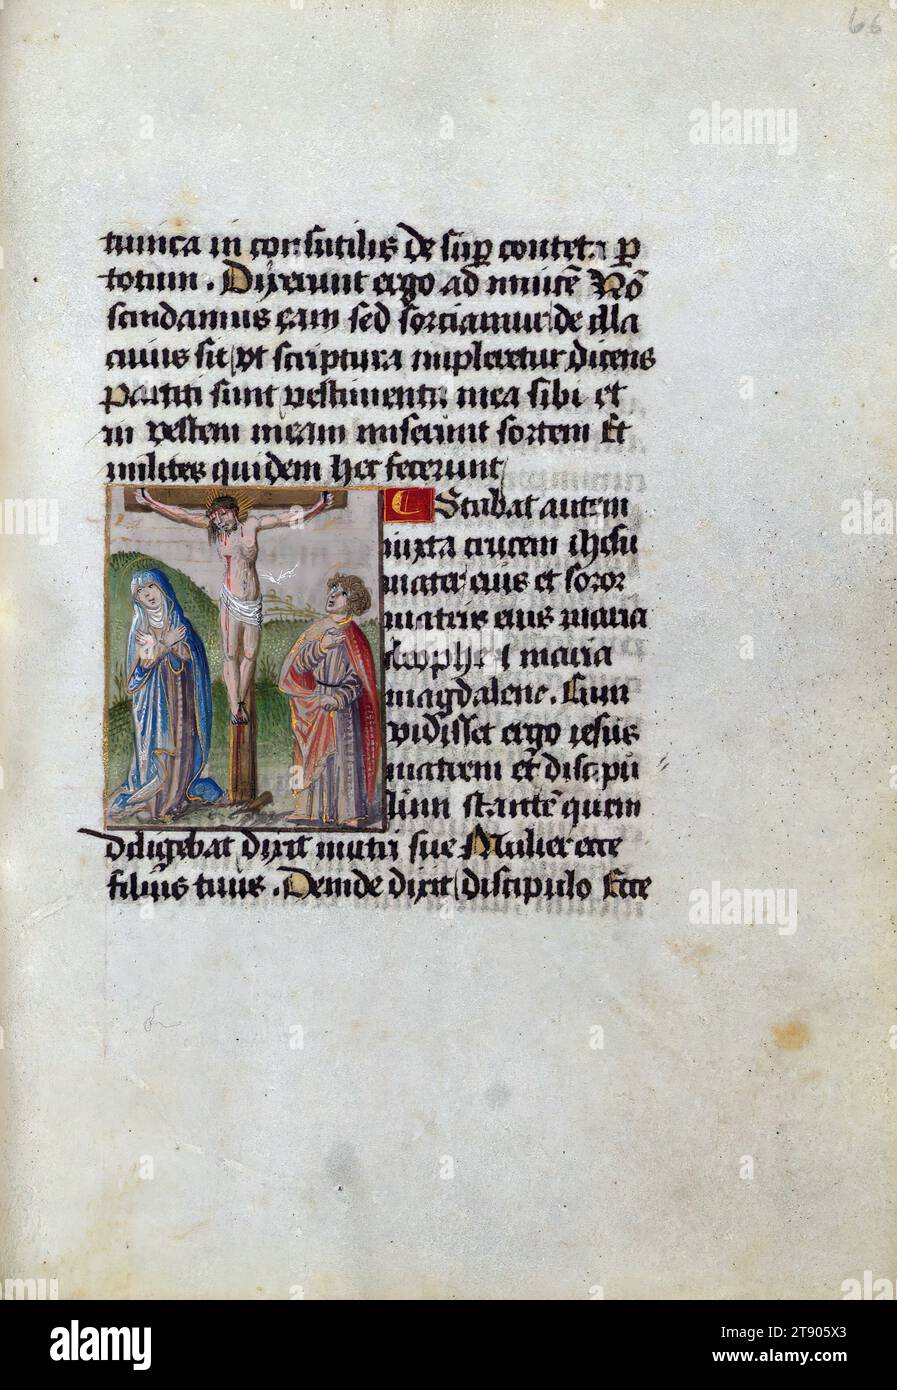 66
tunica in consutilis de sup contexta p
totum. Dixerunt ergo ad inuicē Nō
scindamus eam sed sorciamur de illa
cuius sit vt scriptura impleretur dicens
Partiti sunt vestimenta mea sibi et
in vestem meam miserunt sortem Et
milites quidem hec fecerunt
Stabat autem
iuxta crucem ihesu
mater eius et soror
matris eius maria
cleophe maria
magdalene. Cum
vidisset ergo iesus
matrem et discipu
lum stantē quem
diligebat dixit matri sue Mulier ecce
filius tuus. Deinde dixit discipulo Ecce
alamy
alamy
Image ID: 2T905X3
www.alamy.com